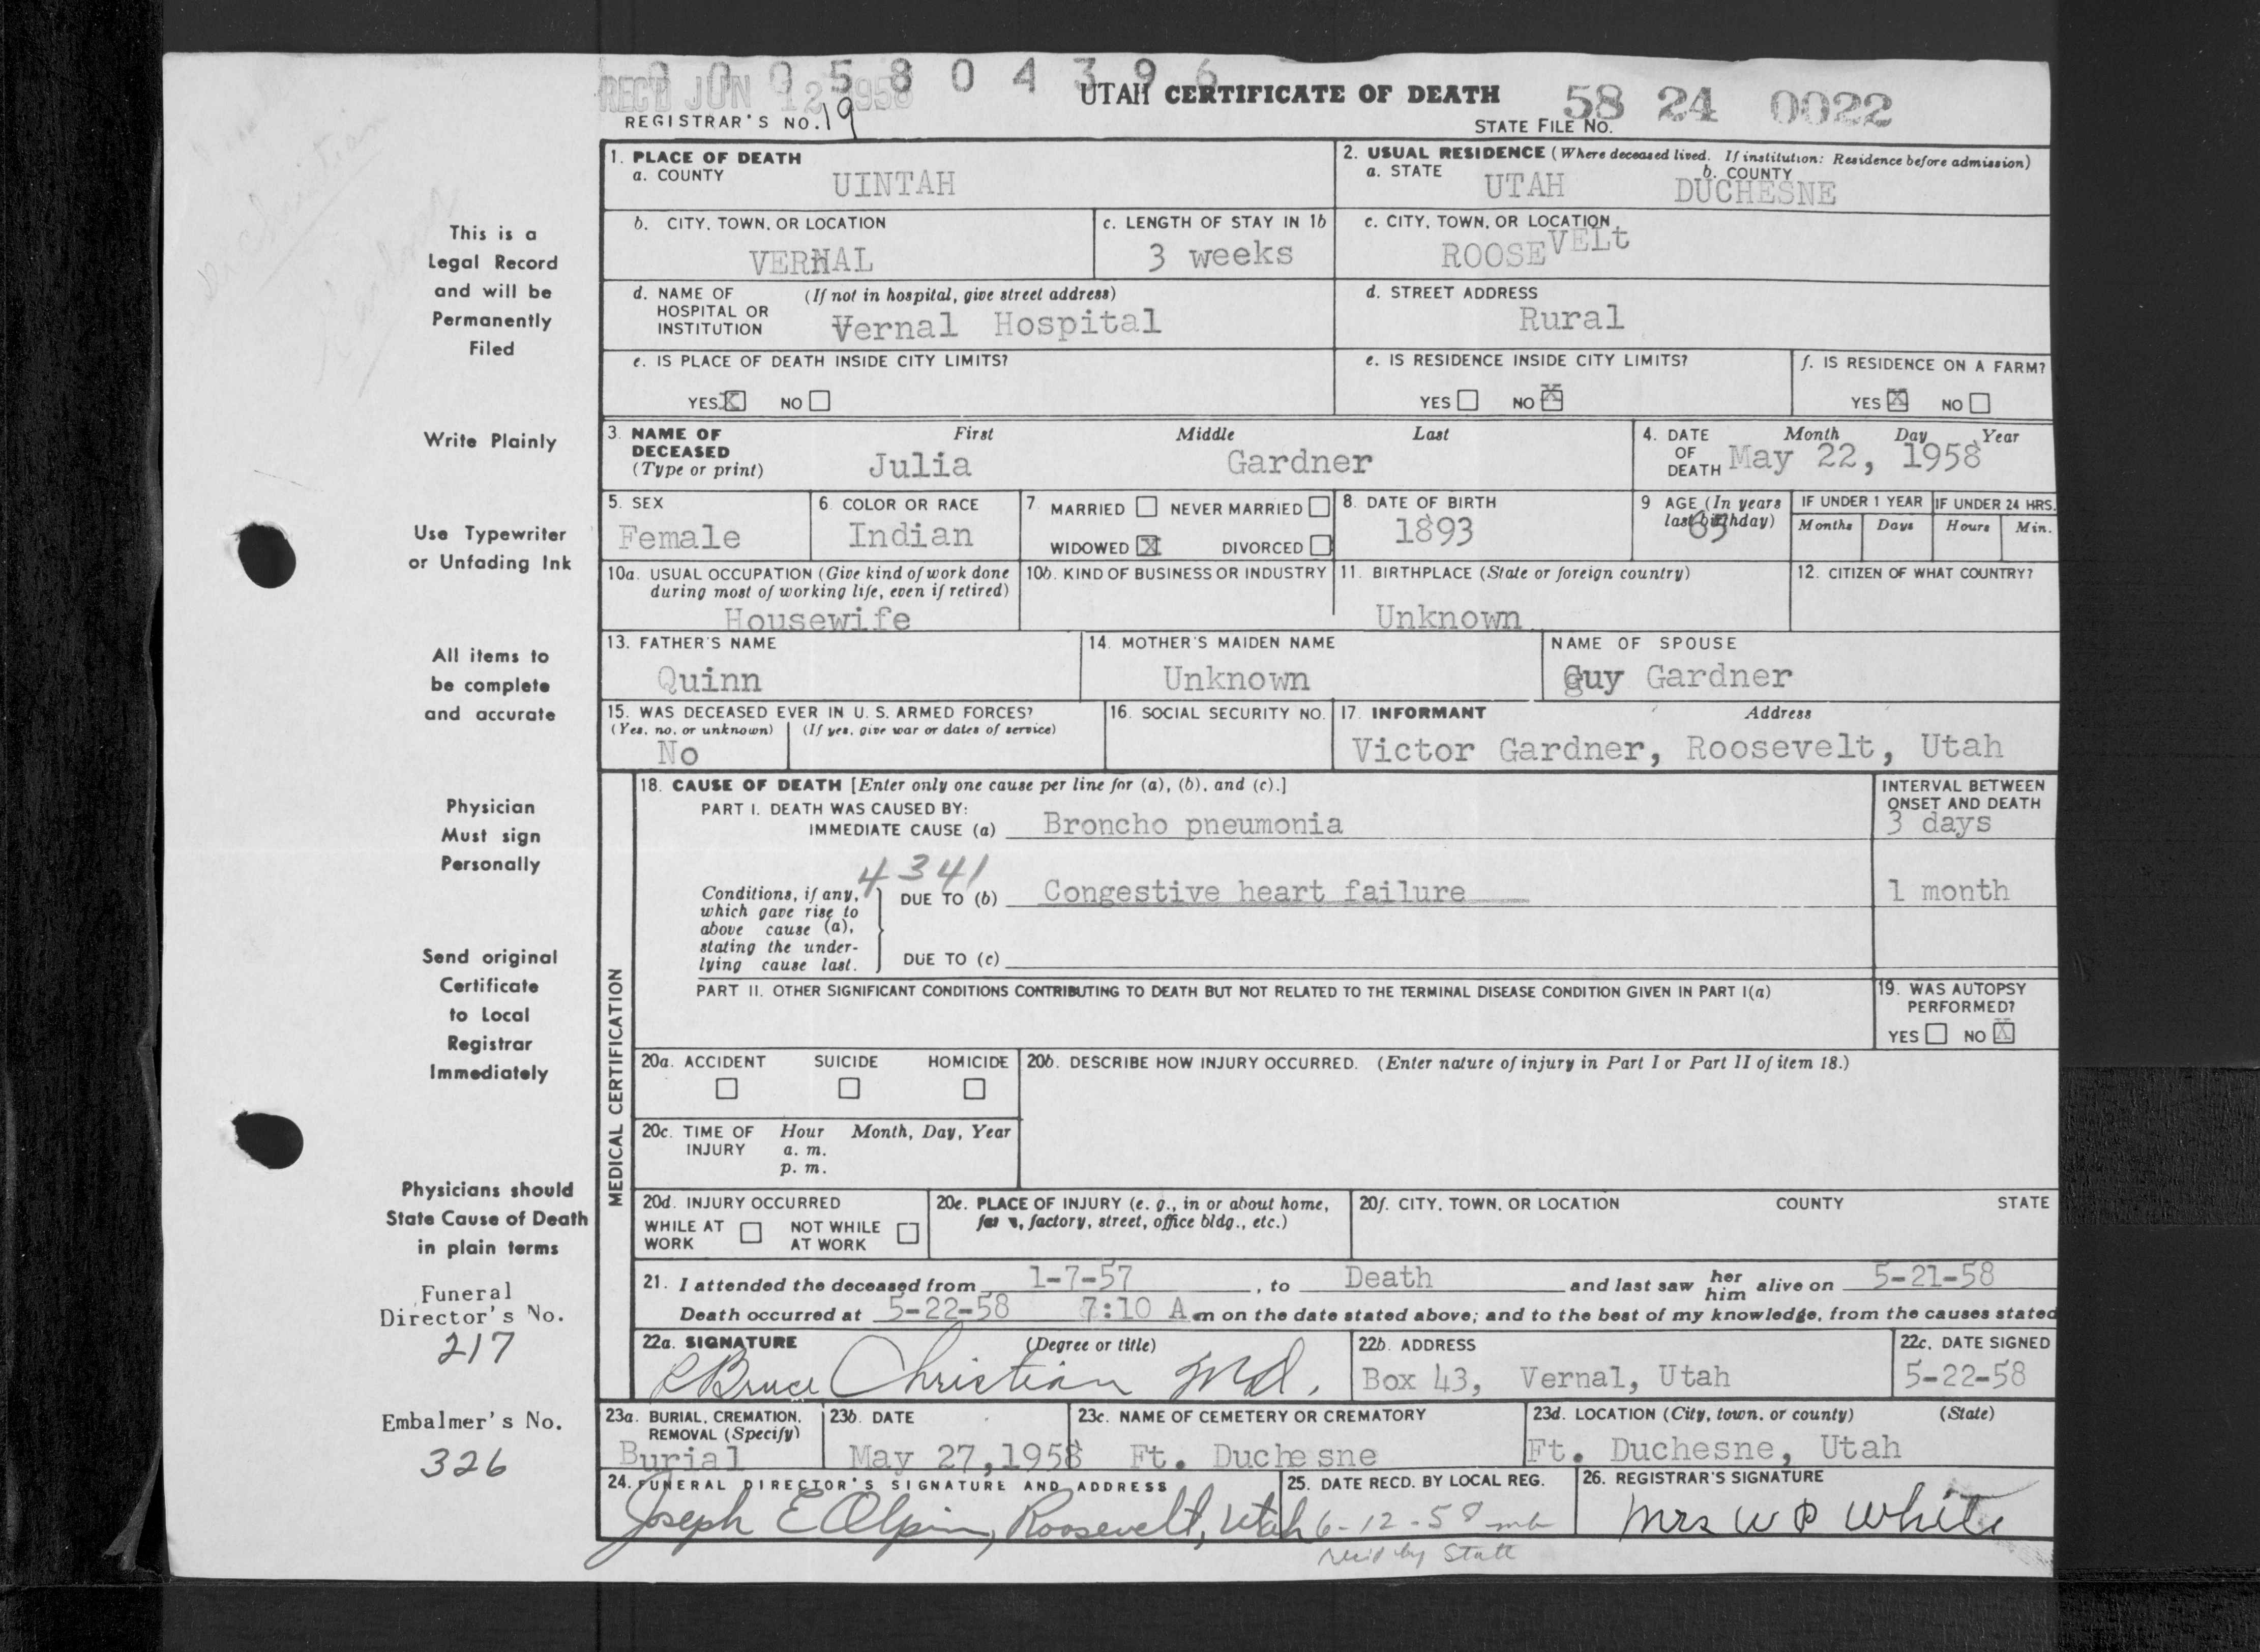 0 0 0 5 8 0 4 3 9 6
REC'D JUN 12 1958
UTAH CERTIFICATE OF DEATH
58 24 0022
REGISTRAR'S NO. 19
STATE FILE NO.
1. PLACE OF DEATH
a. COUNTY UINTAH
2. USUAL RESIDENCE (Where deceased lived. If institution: Residence before admission)
a. STATE UTAH b. COUNTY DUCHESNE
b. CITY, TOWN, OR LOCATION VERNAL
c. LENGTH OF STAY IN 1b 3 weeks
c. CITY, TOWN, OR LOCATION ROOSEVELt
d. NAME OF HOSPITAL OR INSTITUTION (If not in hospital, give street address) Vernal Hospital
d. STREET ADDRESS Rural
e. IS PLACE OF DEATH INSIDE CITY LIMITS?
YES X NO
e. IS RESIDENCE INSIDE CITY LIMITS?
YES NO X
f. IS RESIDENCE ON A FARM?
YES X NO
3. NAME OF DECEASED (Type or print)
First Middle Last
Julia Gardner
4. DATE OF DEATH Month Day Year
May 22, 1958
5. SEX Female
6. COLOR OR RACE Indian
7. MARRIED NEVER MARRIED
WIDOWED X DIVORCED
8. DATE OF BIRTH 1893
9 AGE (In years last birthday) 65
IF UNDER 1 YEAR Months Days
IF UNDER 24 HRS. Hours Min.
10a. USUAL OCCUPATION (Give kind of work done during most of working life, even if retired)
Housewife
10b. KIND OF BUSINESS OR INDUSTRY
11. BIRTHPLACE (State or foreign country)
Unknown
12. CITIZEN OF WHAT COUNTRY?
13. FATHER'S NAME Quinn
14. MOTHER'S MAIDEN NAME Unknown
NAME OF SPOUSE Guy Gardner
15. WAS DECEASED EVER IN U. S. ARMED FORCES?
(Yes, no, or unknown) (If yes, give war or dates of service)
No
16. SOCIAL SECURITY NO.
17. INFORMANT Address
Victor Gardner, Roosevelt, Utah
MEDICAL CERTIFICATION
18. CAUSE OF DEATH [Enter only one cause per line for (a), (b), and (c).]
INTERVAL BETWEEN ONSET AND DEATH
PART I. DEATH WAS CAUSED BY:
IMMEDIATE CAUSE (a) Broncho pneumonia 3 days
4341
Conditions, if any, which gave rise to above cause (a), stating the underlying cause last.
DUE TO (b) Congestive heart failure 1 month
DUE TO (c)
PART II. OTHER SIGNIFICANT CONDITIONS CONTRIBUTING TO DEATH BUT NOT RELATED TO THE TERMINAL DISEASE CONDITION GIVEN IN PART I(a)
19. WAS AUTOPSY PERFORMED?
YES NO X
20a. ACCIDENT SUICIDE HOMICIDE
20b. DESCRIBE HOW INJURY OCCURRED. (Enter nature of injury in Part I or Part II of item 18.)
20c. TIME OF INJURY Hour Month, Day, Year
a. m.
p. m.
20d. INJURY OCCURRED
WHILE AT WORK NOT WHILE AT WORK
20e. PLACE OF INJURY (e. g., in or about home, farm, factory, street, office bldg., etc.)
20f. CITY, TOWN, OR LOCATION COUNTY STATE
21. I attended the deceased from 1-7-57, to Death and last saw her him alive on 5-21-58
Death occurred at 5-22-58 7:10 A m on the date stated above; and to the best of my knowledge, from the causes stated
22a. SIGNATURE (Degree or title)
R Bruce Christian Md.
22b. ADDRESS
Box 43, Vernal, Utah
22c. DATE SIGNED
5-22-58
23a. BURIAL, CREMATION, REMOVAL (Specify)
Burial
23b. DATE
May 27, 1958
23c. NAME OF CEMETERY OR CREMATORY
Ft. Duchesne
23d. LOCATION (City, town, or county) (State)
Ft. Duchesne, Utah
24. FUNERAL DIRECTOR'S SIGNATURE AND ADDRESS
Joseph E Olpin, Roosevelt, Utah
25. DATE RECD. BY LOCAL REG.
6-12-58 mb
rec'd by State
26. REGISTRAR'S SIGNATURE
Mrs W P White
This is a
Legal Record
and will be
Permanently
Filed
Write Plainly
Use Typewriter
or Unfading Ink
All items to
be complete
and accurate
Physician
Must sign
Personally
Send original
Certificate
to Local
Registrar
Immediately
Physicians should
State Cause of Death
in plain terms
Funeral
Director's No.
217
Embalmer's No.
326